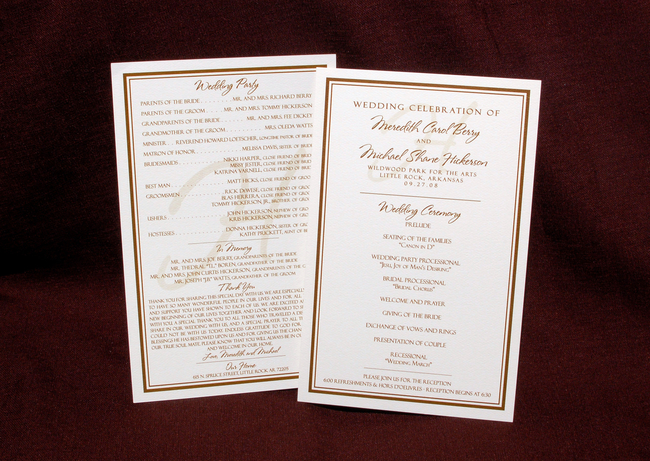 Wedding Party
PARENTS OF THE BRIDE . . . . . . . . MR. AND MRS. RICHARD BERRY
PARENTS OF THE GROOM . . . . . . MR. AND MRS. TOMMY HICKERSON
GRANDPARENTS OF THE BRIDE . . . . . . MR. AND MRS. FLE DICKEY
GRANDMOTHER OF THE GROOM . . . . . . MRS. OLEDA WATTS
MINISTER . . REVEREND HOWARD LOETSCHER, LONGTIME PASTOR OF BRIDE
MATRON OF HONOR . . . . . . MELISSA DAVIS, SISTER OF BRIDE
BRIDESMAIDS . . . . . . NIKKI HARPER, CLOSE FRIEND OF BRIDE
MISSI JESTER, CLOSE FRIEND OF BRIDE
KATRINA VARNELL, CLOSE FRIEND OF
BEST MAN . . . . . . MATT HICKS, CLOSE FRIEND OF GROOM
GROOMSMEN . . . . . . RICK DEWEIR, CLOSE FRIEND OF GROOM
BLAS HERRERA, CLOSE FRIEND OF GROOM
TOMMY HICKERSON, JR., BROTHER OF GROOM
USHERS . . . . . . JOHN HICKERSON, NEPHEW OF GROOM
KRIS HICKERSON, NEPHEW OF GROOM
HOSTESSES . . . . . . DONNA HICKERSON, SISTER OF
KATHY PUCKETT, AUNT OF
In Memory
MR. AND MRS. JOE BERRY, GRANDPARENTS OF THE BRIDE
MR. THEDRAL "T.L." BOREN, GRANDFATHER OF THE BRIDE
MR. AND MRS. JOHN CURTIS HICKERSON, GRANDPARENTS OF THE GROOM
MR. JOSEPH "J.B." WATTS, GRANDFATHER OF THE GROOM
Thank You
THANK YOU FOR SHARING THIS SPECIAL DAY WITH US. WE ARE ESPECIALLY
TO HAVE SO MANY WONDERFUL PEOPLE IN OUR LIVES AND FOR ALL
AND SUPPORT YOU HAVE SHOWN TO EACH OF US. WE ARE EXCITED
NEW BEGINNING OF OUR LIVES TOGETHER, AND LOOK FORWARD TO
WITH YOU. A SPECIAL THANK YOU TO ALL THOSE WHO TRAVELED A
SHARE IN OUR WEDDING WITH US, AND A SPECIAL PRAYER TO ALL
COULD NOT BE WITH US TODAY. ENDLESS GRATITUDE TO GOD FOR
BLESSINGS HE HAS BESTOWED UPON US AND FOR GIVING US THE CHANCE
OUR TRUE SOUL MATE. PLEASE KNOW THAT YOU WILL ALWAYS BE IN
AND WELCOME IN OUR HOME.
Love, Meredith and Michael
Our Home
615 N SPRUCE STREET, LITTLE ROCK, AR 72205
WEDDING CELEBRATION OF
Meredith Carol Berry
AND
Michael Shane Hickerson
WILDWOOD PARK FOR THE ARTS
LITTLE ROCK, ARKANSAS
09.27.08
Wedding Ceremony
PRELUDE
SEATING OF THE FAMILIES
"CANON IN D"
WEDDING PARTY PROCESSIONAL
"JESU, JOY OF MAN'S DESIRING"
BRIDAL PROCESSIONAL
"BRIDAL CHORUS"
WELCOME AND PRAYER
GIVING OF THE BRIDE
EXCHANGE OF VOWS AND RINGS
PRESENTATION OF COUPLE
RECESSIONAL
"WEDDING MARCH"
PLEASE JOIN US FOR THE RECEPTION
6:00 REFRESHMENTS & HORS D'OEUVRES - RECEPTION BEGINS AT 6:30